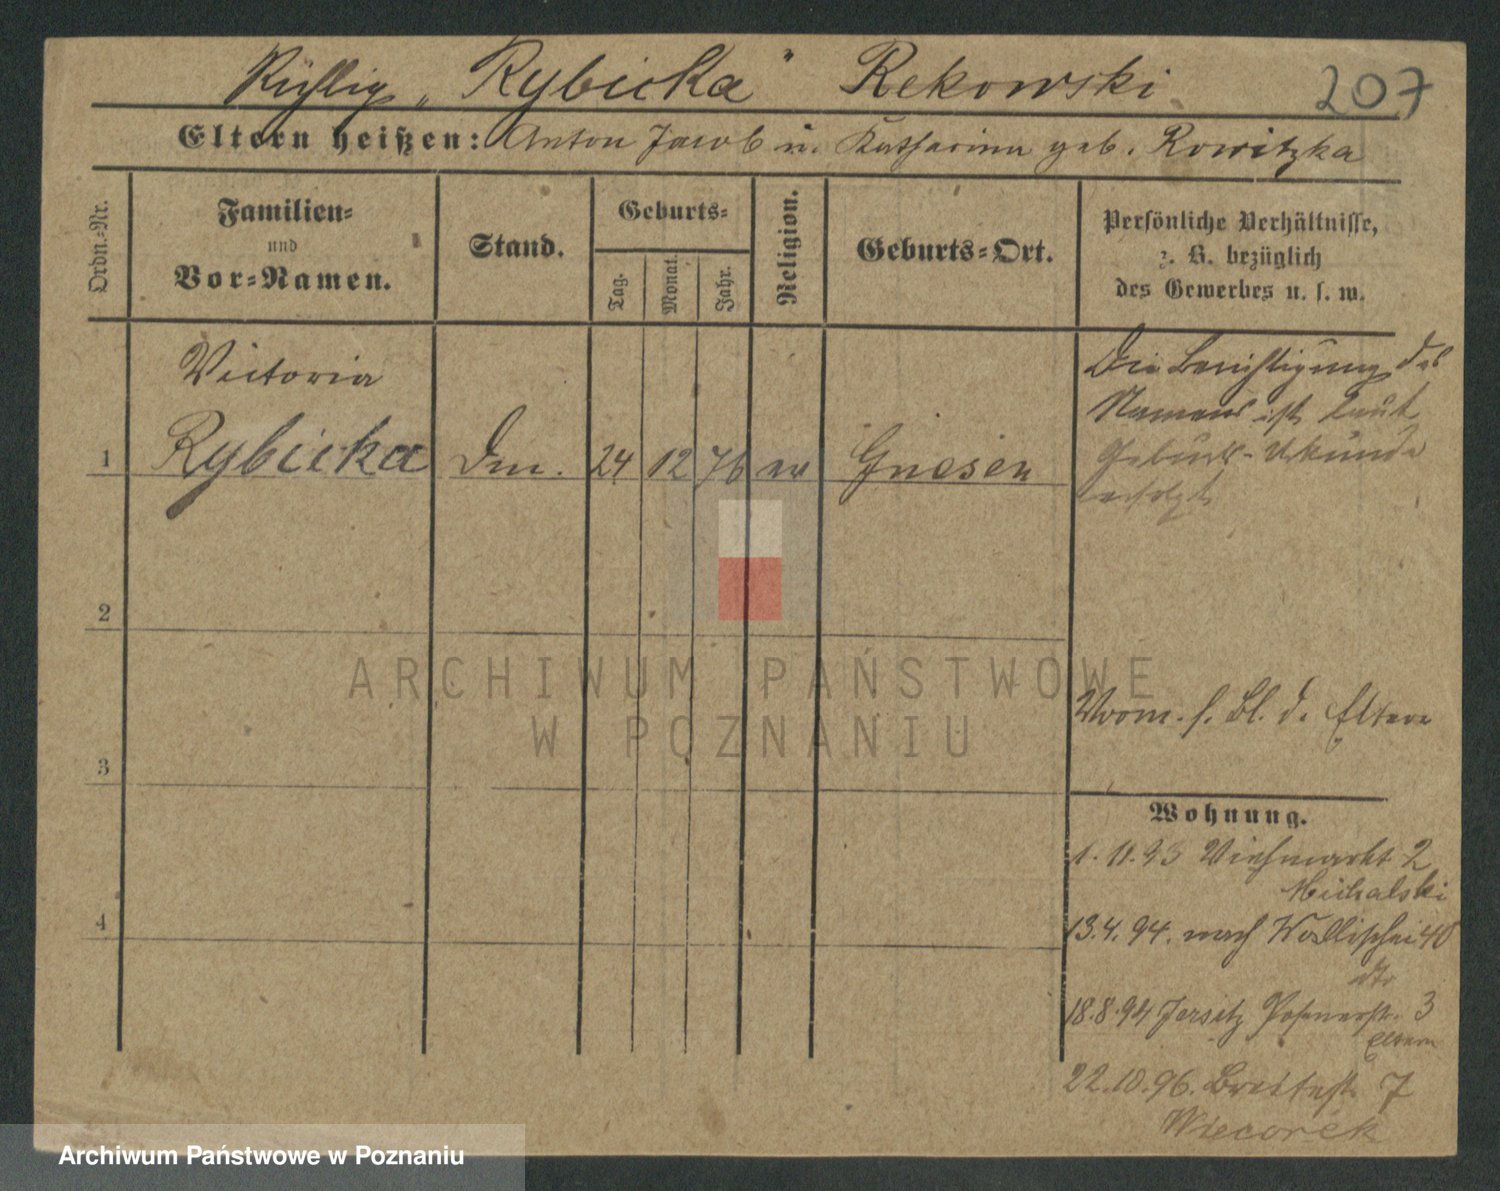 Richtig „Rybicka“ Rekowski
207
Eltern heißen: Anton Jacob u. Katharina geb. Rowitzka
Ordn.-Nr.
Familien-
und
Vor-Namen.
Stand.
Geburts-
Tag.
Monat.
Jahr.
Religion.
Geburts-Ort.
Persönliche Verhältnisse,
z. B. bezüglich
des Gewerbes u. s. w.
Victoria
1 Rybicka 24 12 76 Gnesen
Die Berichtigung des
Namens ist laut
Geburts-Urkunde
erfolgt
2
3
4
Vorm. s. Bl. d. Eltern
Wohnung.
1.11.93 Viehmarkt 2
Michalski
13.4.94. nach Wallischei 40
18.8.94 Jersitz Posenerstr. 3
Eltern
22.10.96. Breitestr. 7
Wiecorek
ARCHIWUM PAŃSTWOWE
W POZNANIU
Archiwum Państwowe w Poznaniu